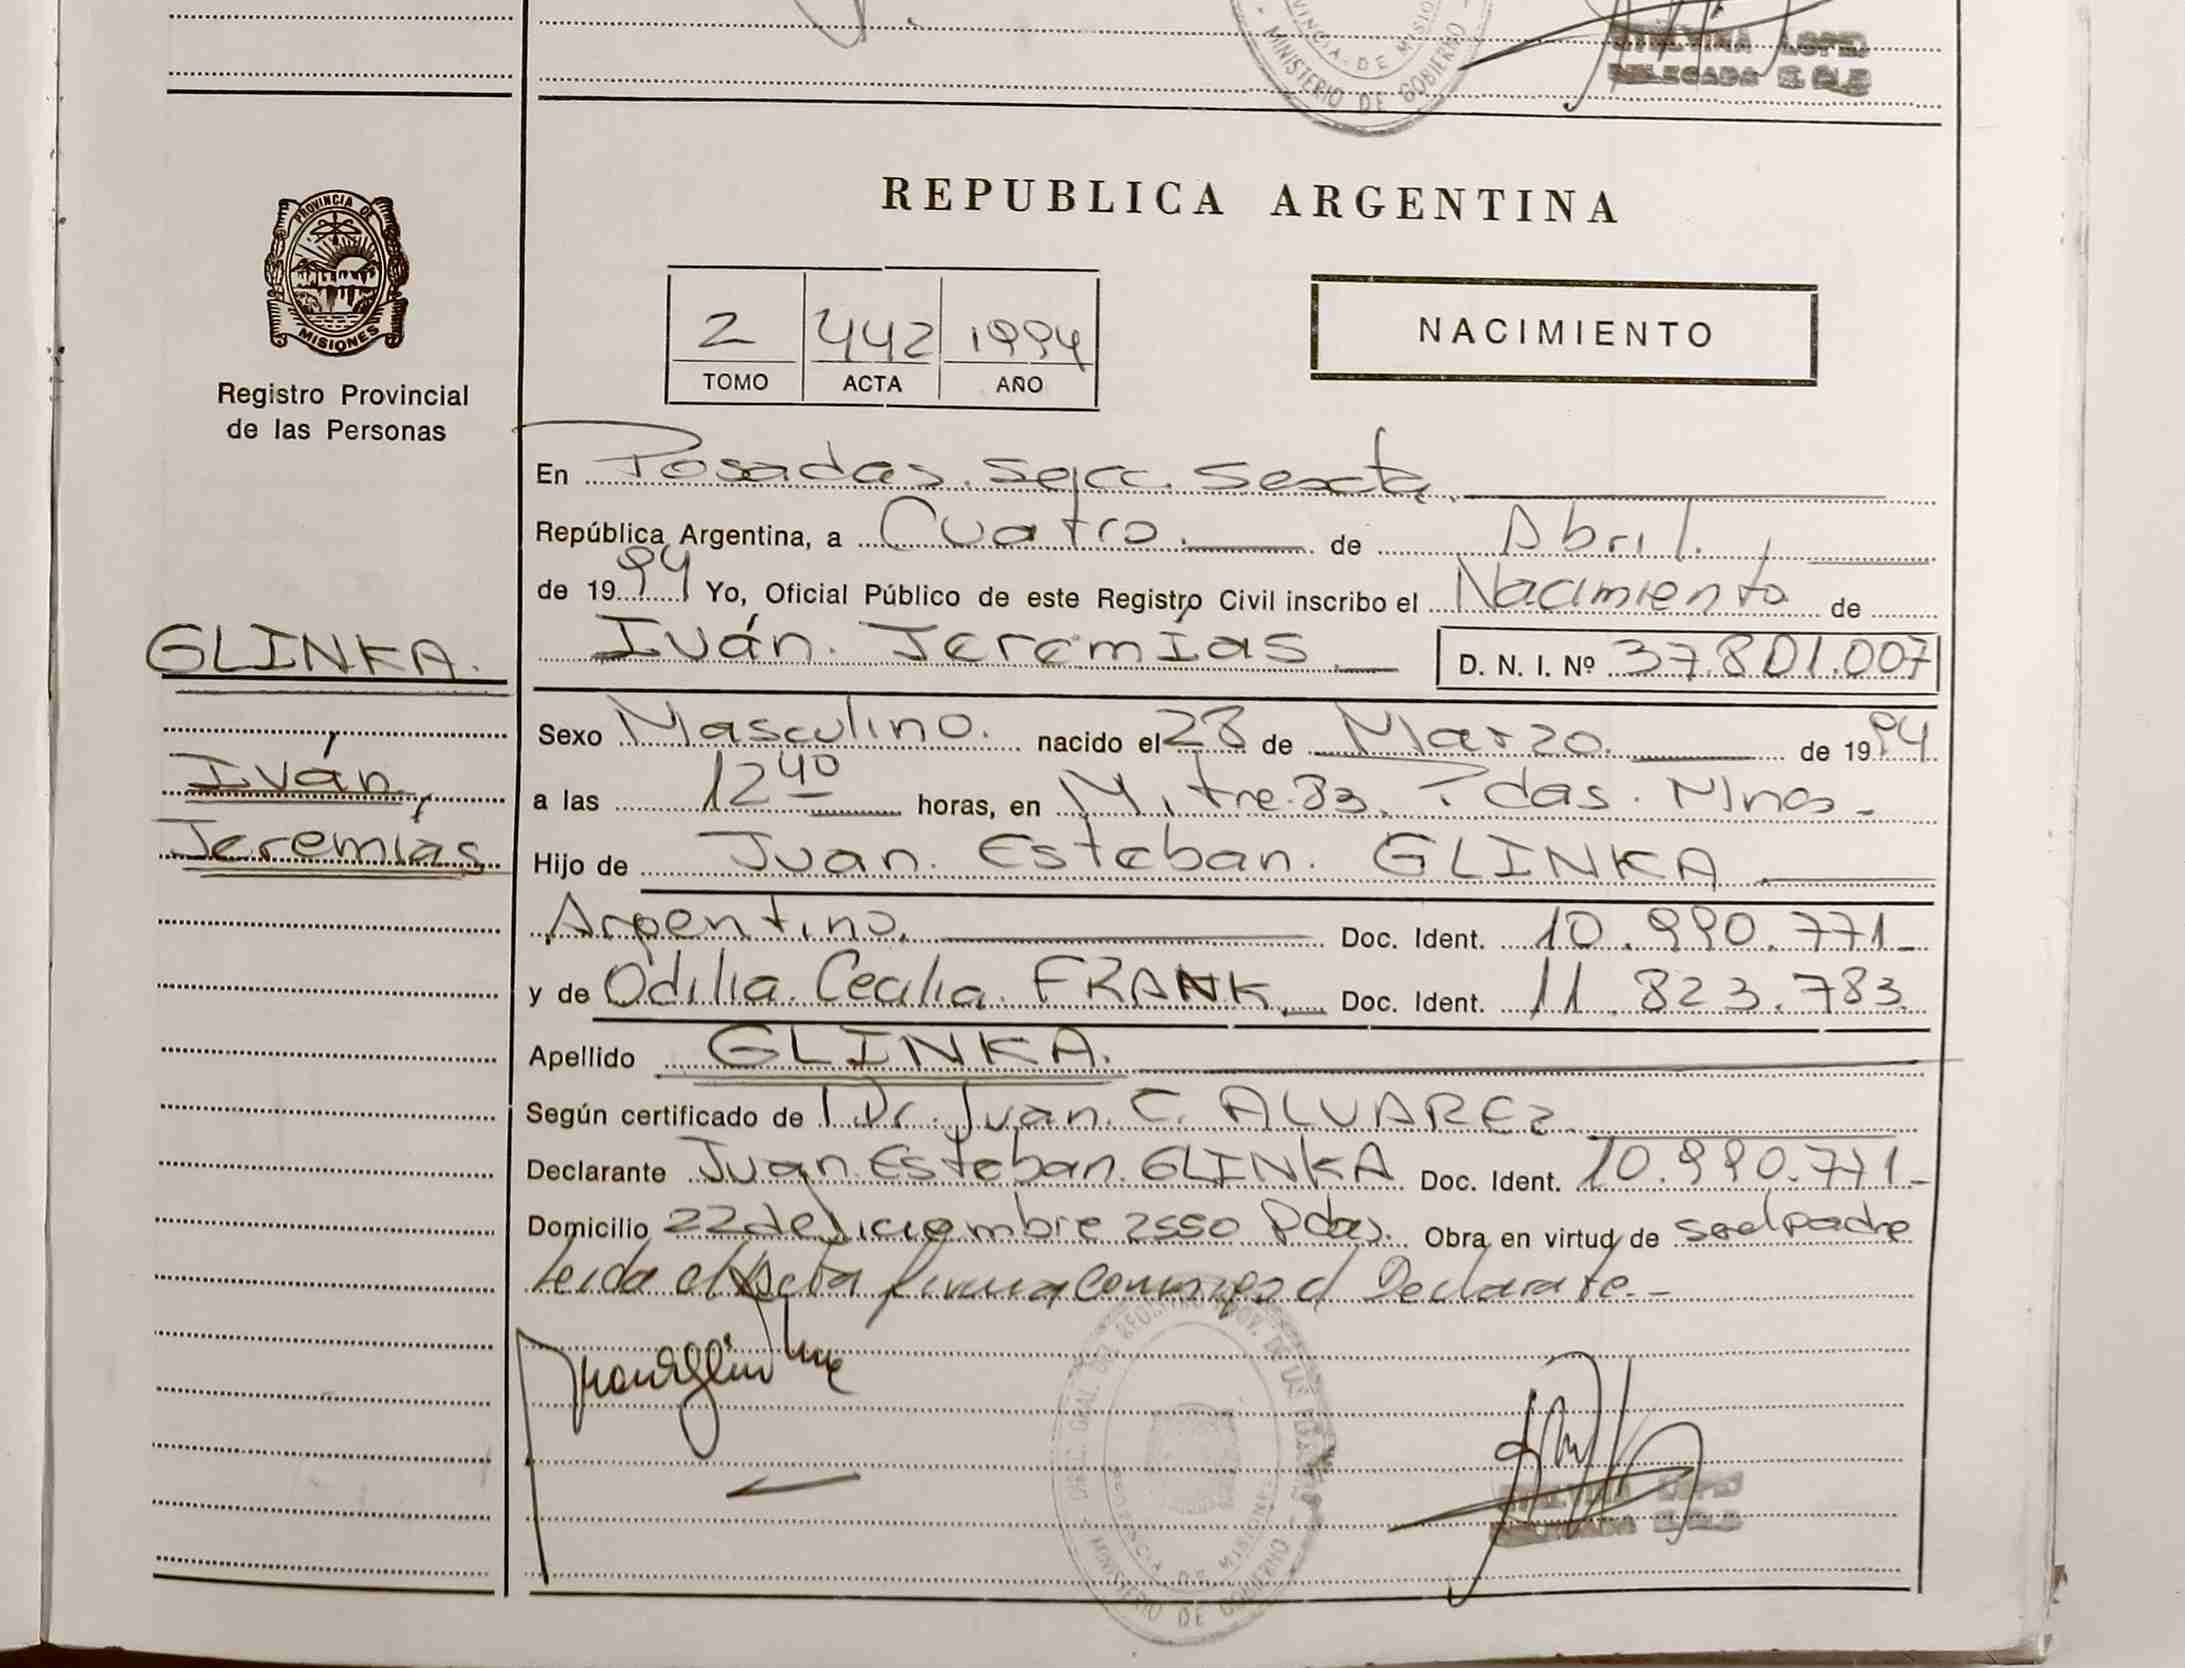 PROVINCIA DE MISIONES
MINISTERIO DE GOBIERNO
ETELVINA LOPEZ
DELEGADA
PROVINCIA DE
MISIONES
Registro Provincial
de las Personas
GLINKA.
Iván
Jeremías
REPUBLICA ARGENTINA
2 442 1994
TOMO ACTA AÑO
NACIMIENTO
En Posadas. Secc. Sexta.
República Argentina, a Cuatro. de Abril.
de 1994 Yo, Oficial Público de este Registro Civil inscribo el Nacimiento de
Iván. Jeremías D. N. I. Nº 37.801.007
Sexo Masculino. nacido el 28 de Marzo. de 1994
a las 12 40 horas, en Mitre. 83. Pdas. Mnes.
Hijo de Juan. Esteban. GLINKA
Argentino. Doc. Ident. 10.990.771-
y de Odilia. Cecilia. FRANK. Doc. Ident. 11.823.783.
Apellido GLINKA.
Según certificado de Dr. Juan. C. ALVAREZ
Declarante Juan. Esteban. GLINKA Doc. Ident. 10.990.771-
Domicilio 22 de Diciembre 2550 Pdas. Obra en virtud de padre
Leida el Acta firma conmigo el Declarante.-
DIREC. GRAL. DEL REGISTRO PROV. DE LAS PERSONAS
PROVINCIA DE MISIONES
MINISTERIO DE GOBIERNO
ETELVINA LOPEZ
DELEGADA